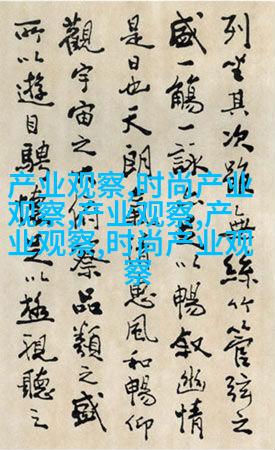 产业观察,时尚产业
观察,产业观察,产
业观察,时尚产业观
察
列坐其次雖無絲竹管弦之
盛一觴一詠以暢敘幽情
是日也天朗惠風和暢仰
觀宇宙之俯察品類之盛
所以遊目騁足以極視聽之